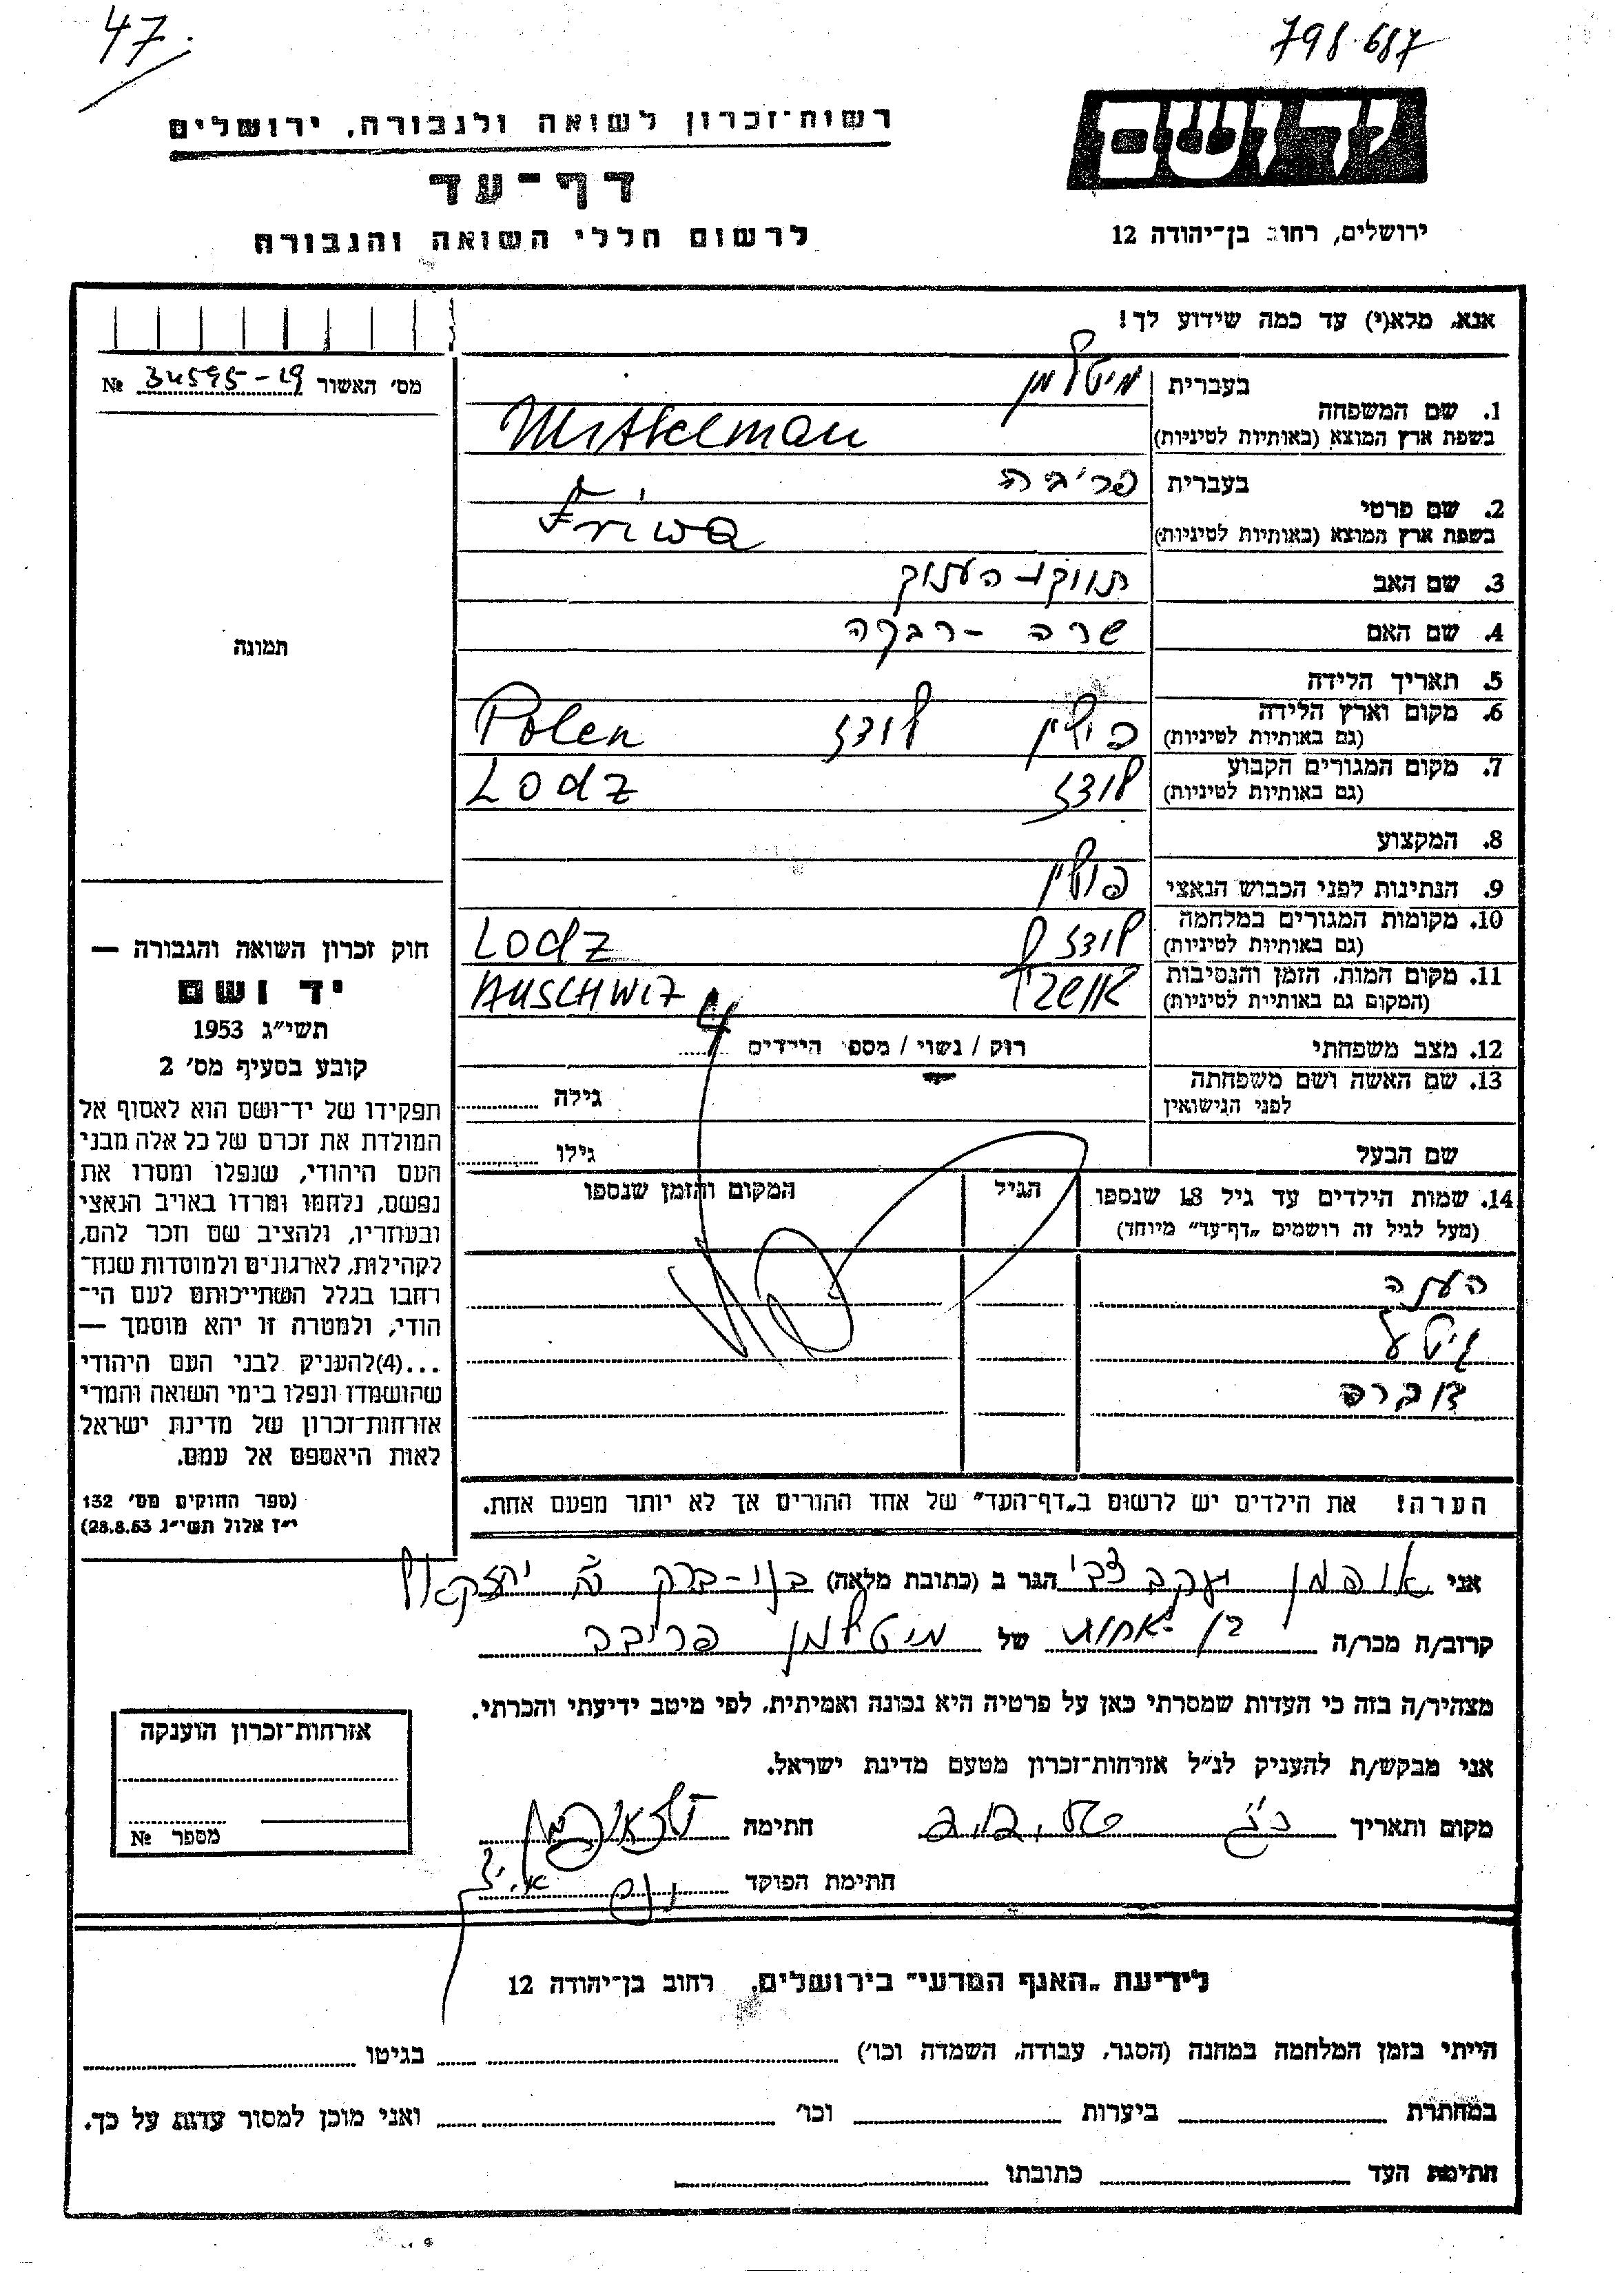 47.
798.687
רשות־זכרון לשואה ולגבורה, ירושלים
יד ושם
דף־עד
לרשום חללי השואה והגבורה
ירושלים, רחוב בן־יהודה 12
אנא, מלא(י) עד כמה שידוע לך!
מס׳ האשור 34595-19 №
בעברית מיטלמן
1. שם המשפחה
בשפת ארץ המוצא (באותיות לטיניות) Mittelman
בעברית פריבה
2. שם פרטי
בשפת ארץ המוצא (באותיות לטיניות) Friwa
3. שם האב
4. שם האם שרה - רבקה
5. תאריך הלידה
6. מקום וארץ הלידה פולין לודז Polen
(גם באותיות לטיניות)
7. מקום המגורים הקבוע לודז Lodz
(גם באותיות לטיניות)
8. המקצוע
9. הנתינות לפני הכבוש הנאצי פולין
10. מקומות המגורים במלחמה לודז Lodz
(גם באותיות לטיניות)
11. מקום המות, הזמן והנסיבות AUSCHWIZ
(המקום גם באותיות לטיניות)
12. מצב משפחתי רוק / נשוי / מספר הילדים 4
13. שם האשה ושם משפחתה
לפני הנישואין גילה
שם הבעל גילו
14. שמות הילדים עד גיל 18 שנספו הגיל המקום והזמן שנספו
(מעל לגיל זה רושמים „דף־עד” מיוחד)
גיטל
דוברה
הערה! את הילדים יש לרשום ב„דף־העד” של אחד ההורים אך לא יותר מפעם אחת.
תמונה
חוק זכרון השואה והגבורה —
יד ושם
תשי״ג 1953
קובע בסעיף מס׳ 2
תפקידו של יד־ושם הוא לאסוף אל
המולדת את זכרם של כל אלה מבני
העם היהודי, שנפלו ומסרו את
נפשם, נלחמו ומרדו באויב הנאצי
ובעוזריו, ולהציב שם וזכר להם,
לקהילות, לארגונים ולמוסדות שנח־
רבו בגלל השתייכותם לעם הי־
הודי, ולמטרה זו יהא מוסמך —
...(4) להעניק לבני העם היהודי
שהושמדו ונפלו בימי השואה והמרי
אזרחות־זכרון של מדינת ישראל
לאות היאספם אל עמם.
(ספר החוקים מס׳ 132
י״ז אלול תשי״ג 28.8.53)
אני אופמן יעקב צבי הגר ב (כתובת מלאה) בני-ברק יחזקאל
קרוב/ה מכר/ה בן אחות של מיטלמן פריבה
מצהיר/ה בזה כי העדות שמסרתי כאן על פרטיה היא נכונה ואמיתית, לפי מיטב ידיעתי והכרתי.
אני מבקש/ת להעניק לנ״ל אזרחות־זכרון מטעם מדינת ישראל.
מקום ותאריך חתימה
חתימת הפוקד
אזרחות־זכרון הוענקה
מספר №
לידיעת „האגף המדעי” בירושלים, רחוב בן־יהודה 12
הייתי בזמן המלחמה במחנה (הסגר, עבודה, השמדה וכו׳) בגיטו
במחתרת ביערות וכו׳ ואני מוכן למסור עדות על כך.
חתימת העד כתובתו